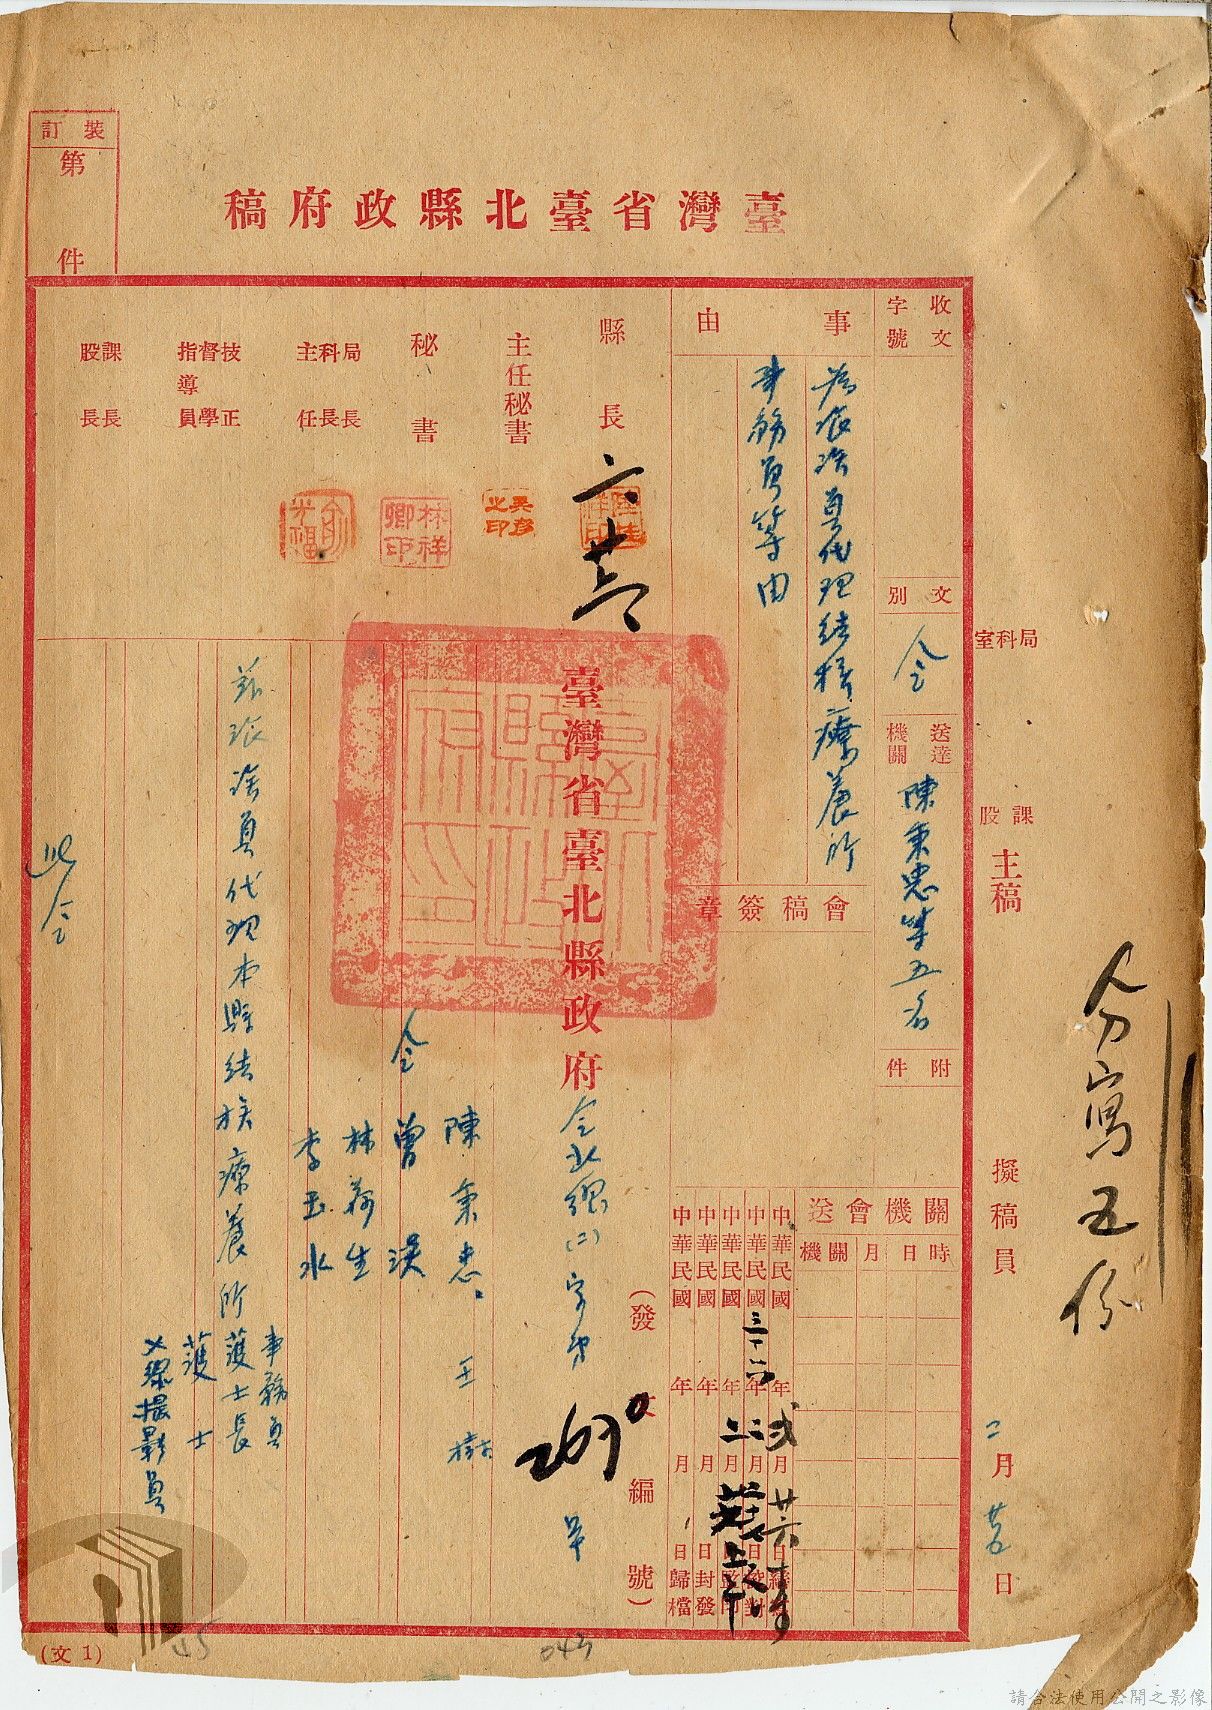 臺灣省臺北縣政府稿
裝訂
第 件
收文
字號
文別
令
送達
機關
陳秉忠等五名
附件
事由
為派李員代理結核療養所
事務員等由
會稿簽章
縣長
主任秘書
秘書
局科主
長長任
技督指導
正學員
課股
長長
吳彥之印
林祥卿印
局科室
課股
主稿
擬稿員
二月廿五日
分寫五份
關機會送
時 日 月 關機
中華民國 年 弍月 廿六日
中華民國三十六年二月 日
中華民國 年 二月 日
中華民國 年 月 日封發
中華民國 年 月 日歸檔
(發文編號)
臺灣省臺北縣政府
令
字第
2690
號
陳秉忠、王樹
令 曾溪
林葯生
李玉水
茲派該員代理本縣結核療養所
事務員
護士長
護士
X線撮影員
此令
(文1)
45
043
請合法使用公開之影像